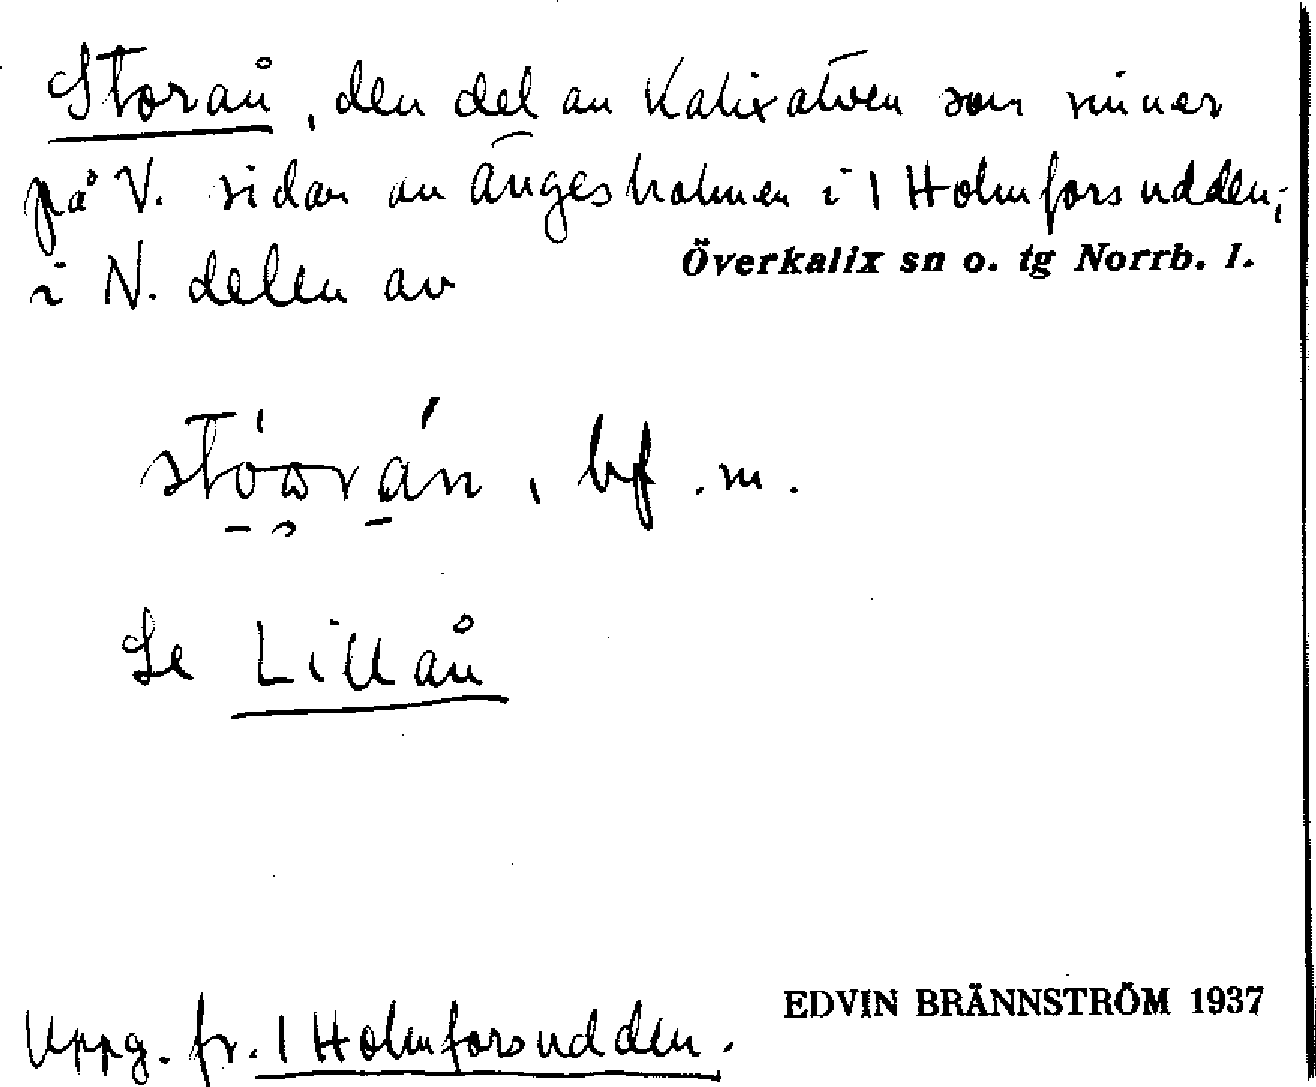 Storån, den del av Kalixälven som rinner
på V. sidan av Ängesholmen i 1 Holmforsudden;
i N. delen av Överkalix sn o. tg Norrb. l.
bf. m.
Se Lillån
EDVIN BRÄNNSTRÖM 1937
Uppg. fr. 1 Holmforsudden.